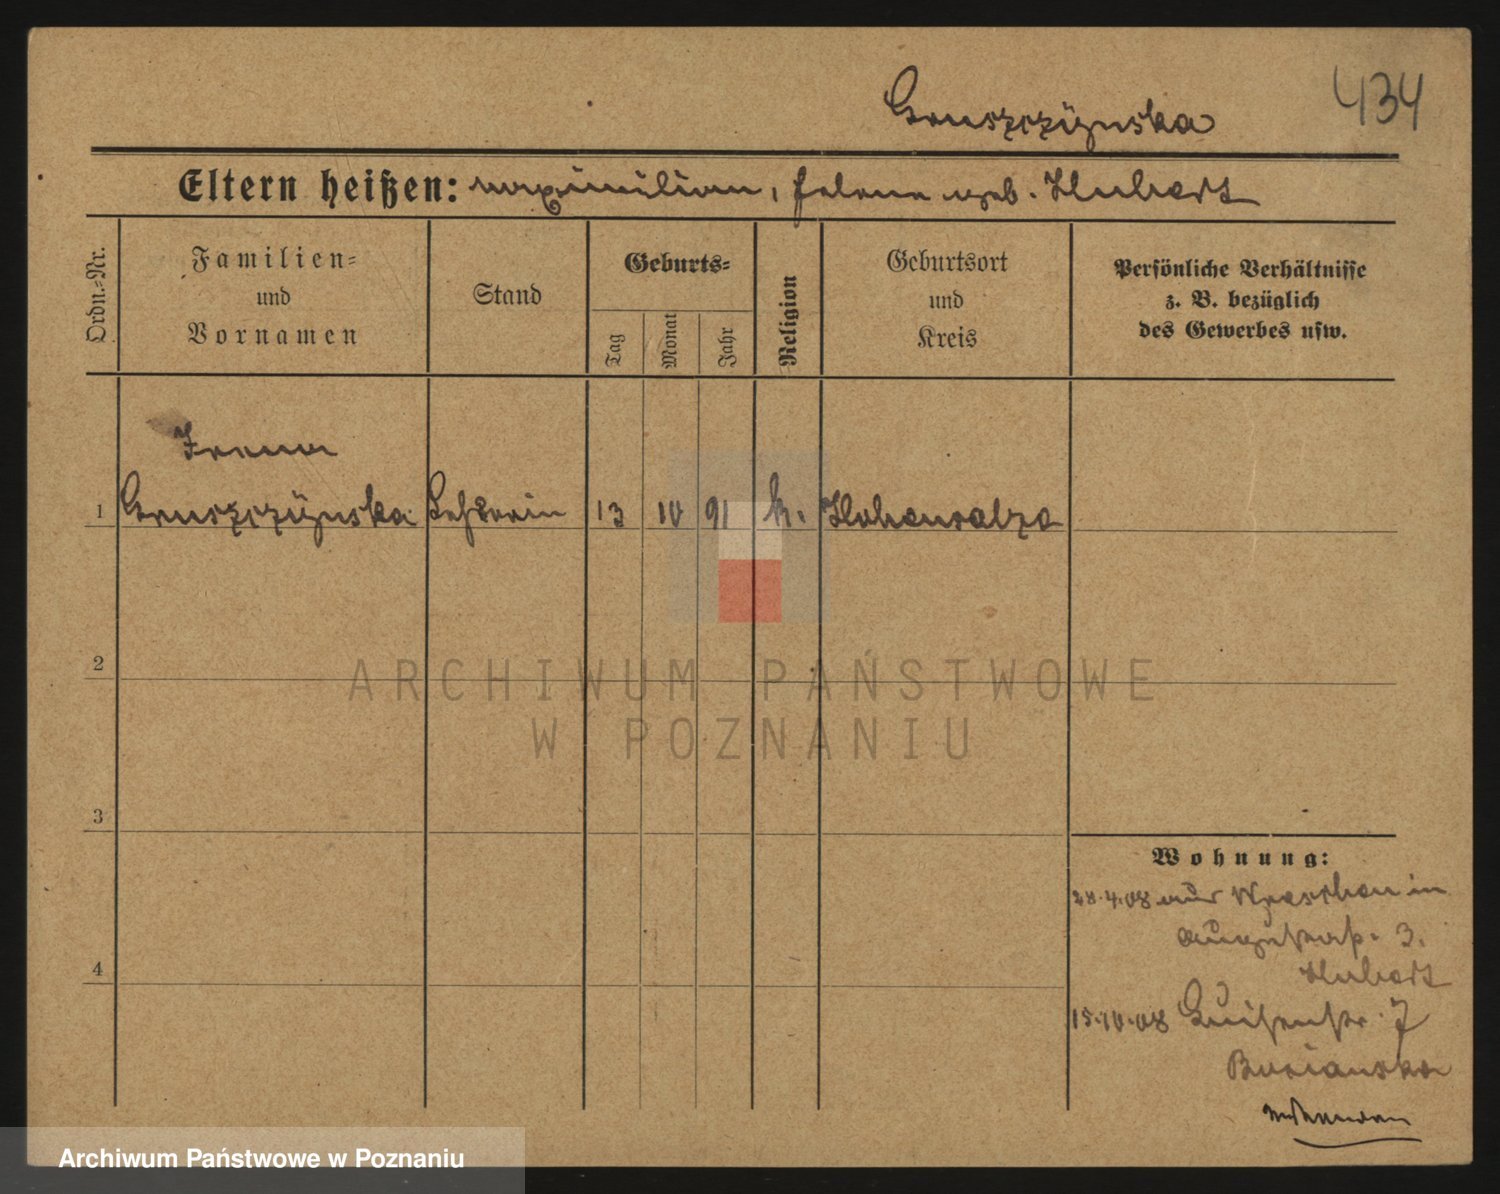 434
Gruszczÿnska
Eltern heißen: Maximilian, Helene geb. Hubert
Ordn.-Nr.
Familien-
und
Vornamen
Stand
Geburts-
Tag
Monat
Jahr
Religion
Geburtsort
und
Kreis
Persönliche Verhältnisse
z. B. bezüglich
des Gewerbes usw.
Irena
1 Gruszczÿnska Lehrerin 13 10 91 k. Hohensalza
2
3
4
ARCHIWUM PAŃSTWOWE
W POZNANIU
Wohnung:
28.4.08 aus Wreschen in
Augustastr. 3.
Hubert
15.10.08 Luisenstr. 7
Archiwum Państwowe w Poznaniu